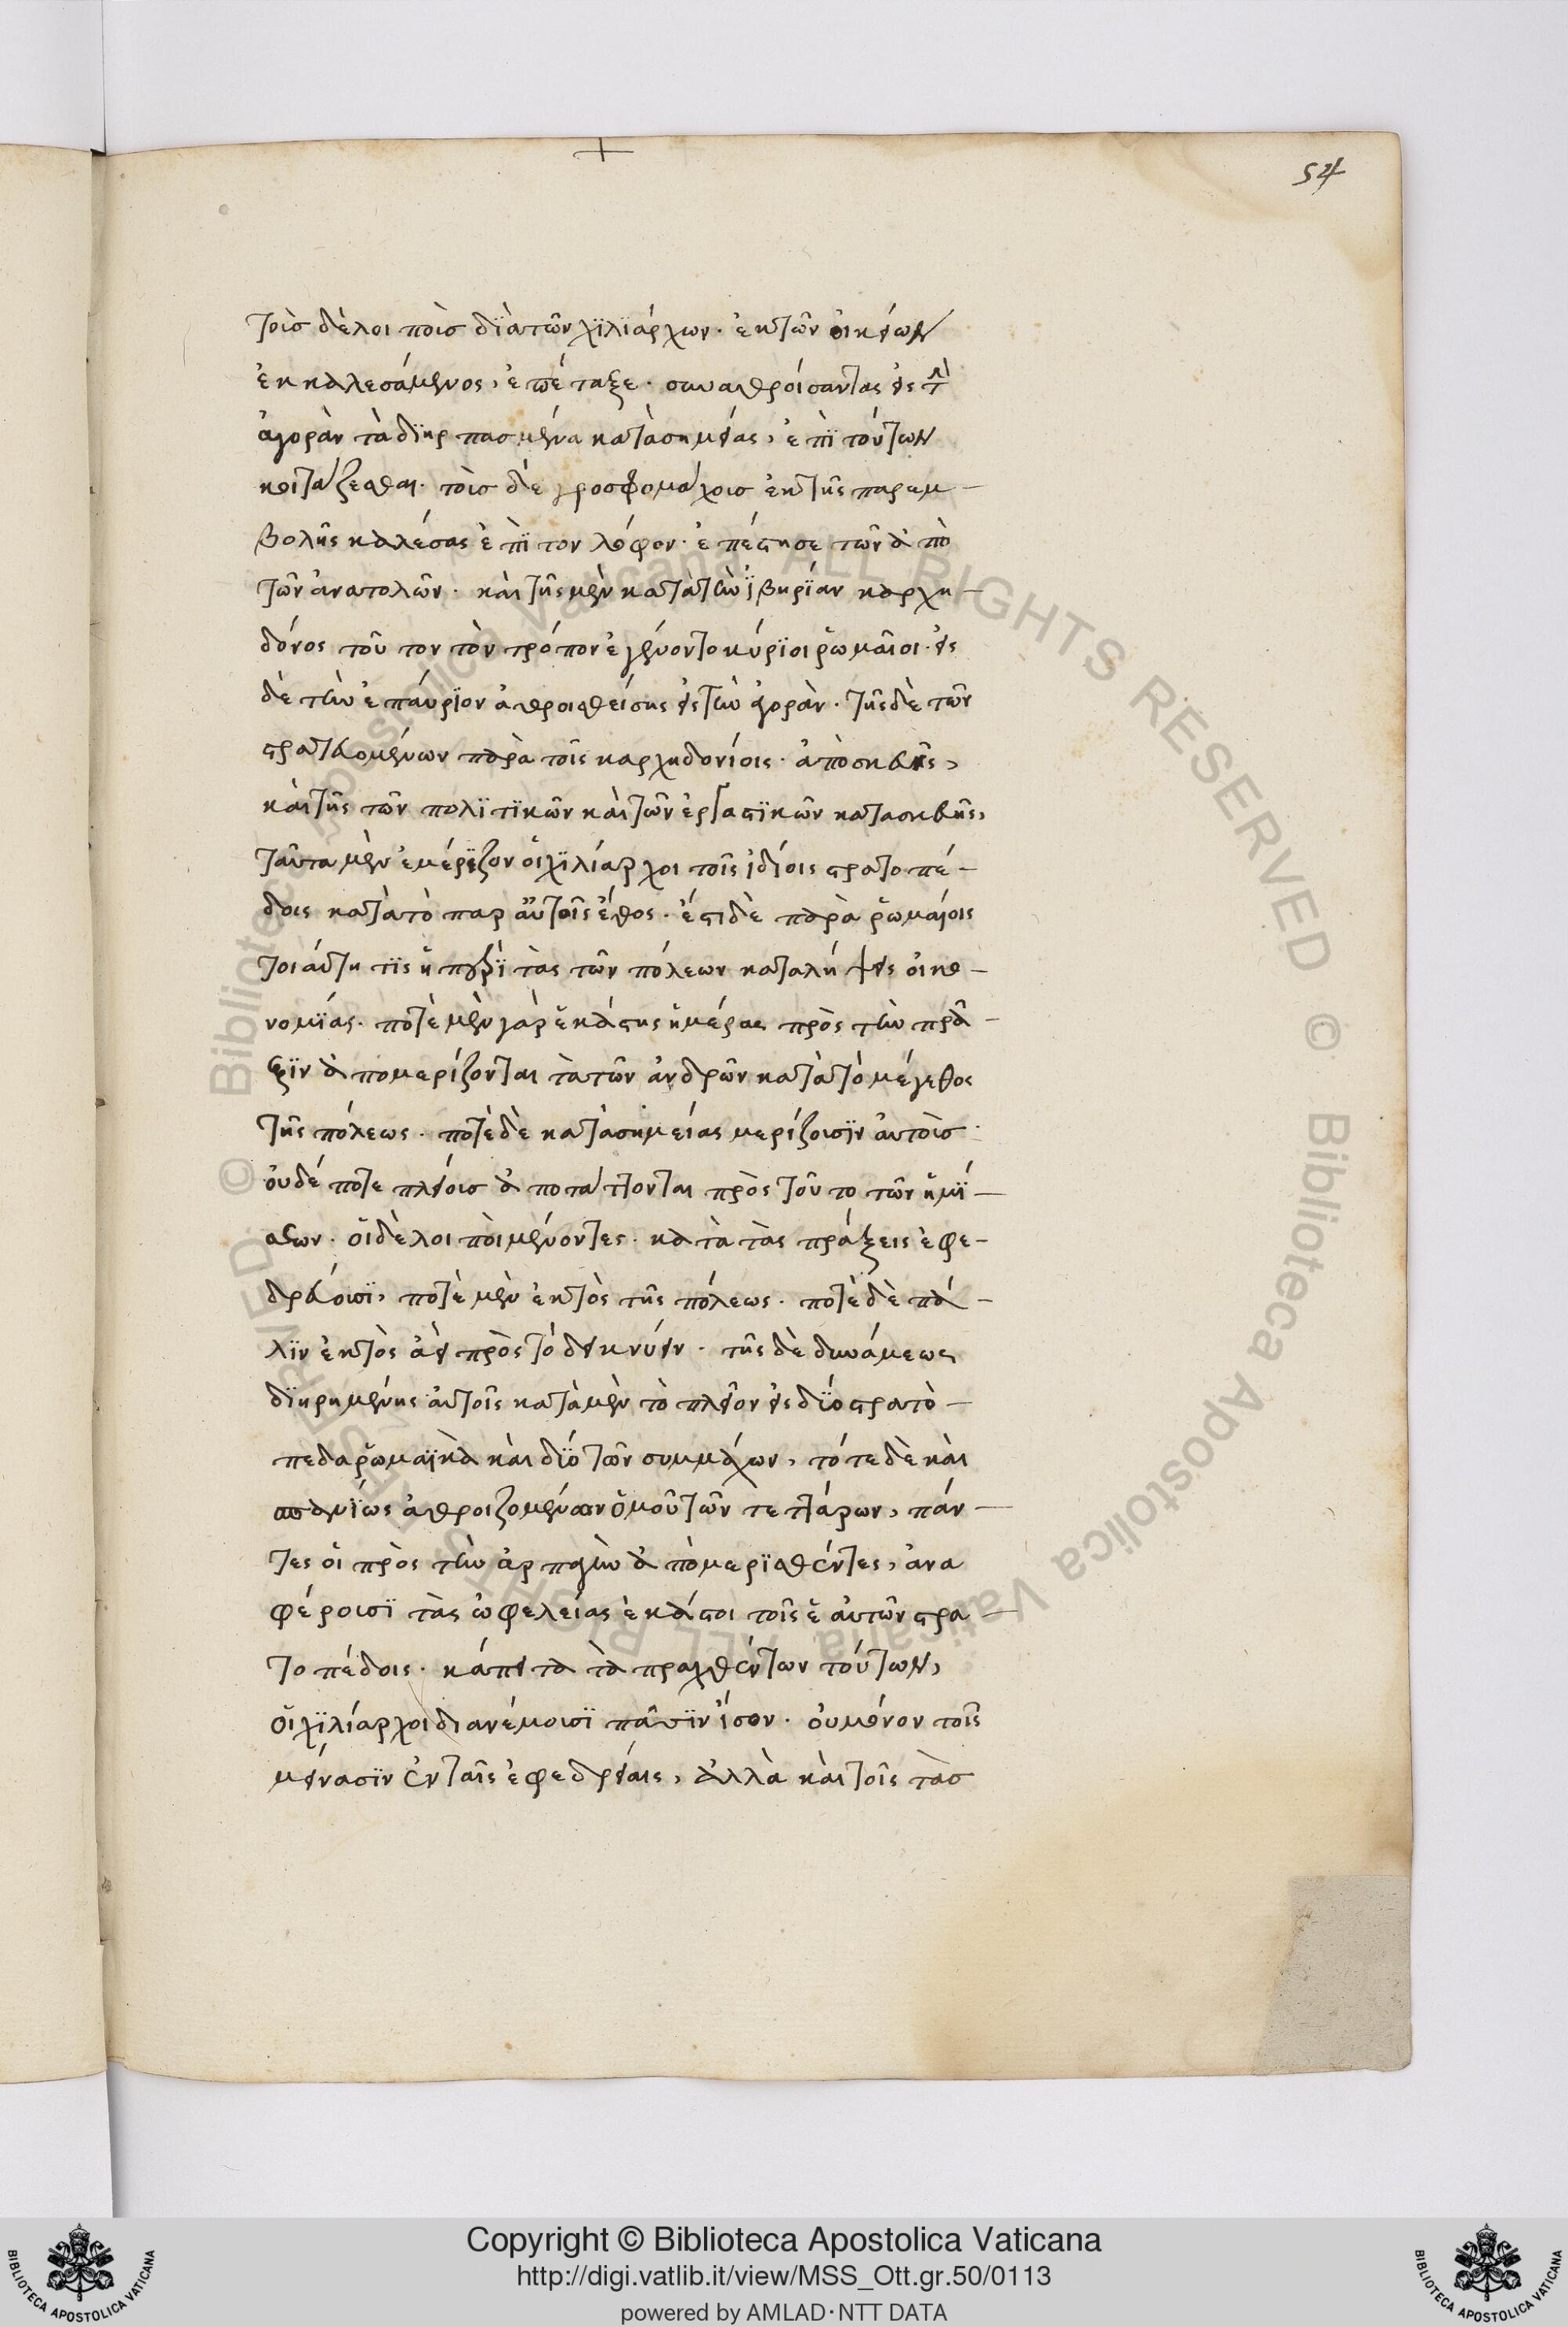 54
τοῖσ δὲ λοι ποῖσ δϊα τῶν χϊλϊάρχων· ἐκ τῶν οἰκειῶν
ἐκκαλεσάμενος, ἐπέταξε· συναθροίσαντας εἰς τὴν
ἀγορὰν τὰ δϊηρπασμένα κατὰ σημείας, ἐπϊ τούτων
κοιτάζεσθαι· τοῖσ δὲ γροσφομάχοισ ἐκ τῆς παρεμ-
βολῆς καλέσας ἐπϊ τον λόφον· ἐπέστησε τῶν ἀπὸ
τῶν ἀνατολῶν· καὶ τῆς μὲν κατὰ τὴν ϊβηρίαν καρχη-
δόνος τοῦτον τὸν τρόπον ἐγένοντο κύρϊοι ῥωμαῖοι· εἰς
δὲ τὴν ἐπαύρϊον ἀθροισθείσης εἰς τὴν ἀγορὰν· τῆς δὲ τῶν
στρατευομένων παρὰ τοῖς καρχηδονίοις· ἀποσκευῆς,
καὶ τῆς τῶν πολϊτϊκῶν καὶ τῶν ἐργαστϊκῶν κατασκευῆς,
ταῦτα μὲν ἐμέρϊζον οἱ χϊλίαρχοι τοῖς ἰδίοις στρατοπέ-
δοις κατὰ τὸ παρ αὐτοῖς ἔθος· ἔστι δὲ παρὰ ῥωμαίοις
τοιαύτη τϊς ἡ περϊ τὰς τῶν πόλεων καταλήψεις οἰκο-
νομϊας· ποτὲ μὲν γὰρ ἑκάστης ἡμέρας πρὸς τὴν πρᾶ-
ξϊν ἀπομερίζονται τὰ τῶν ἀνδρῶν κατὰ τὸ μέγεθος
τῆς πόλεως· ποτὲ δὲ κατὰ σημείας μερίζουσϊν αὐτοὺσ·
οὐδέ ποτε πλείουσ ἀποτάττονται πρὸς τοῦτο τῶν ἡμϊ-
σεων· οἱ δὲ λοιποὶ μένοντες· κατὰ τὰς τάξεις ἐφε-
δρεύουσϊ, ποτὲ μὲν ἐκτὸς τῆς πόλεως· ποτὲ δὲ πά-
λϊν ἐκτὸς ἀεὶ πρὸς τὸ δεικνύειν· τῆς δὲ δυνάμεως
δϊηρημένης αὐτοῖς κατὰ μὲν τὸ πλεῖον εἰς δϊό στρατὸ-
πεδα ῥωμαϊκὰ καὶ δϊό τῶν συμμάχων, τότε δὲ καὶ
σπανϊως ἀθροιζομένων ὁμοῦ τῶν τεττάρων, πάν-
τες οἱ πρὸς τὴν ἁρπαγὴν ἀπομερϊσθέντες, ἀνα
φέρουσϊ τὰς ὠφελείας ἑκάστοι τοῖς ἑαυτῶν στρα-
τοπέδοις· κάπειτα τὰ πραχθέντων τούτων,
οἱ χϊλίαρχοι διανέμουσϊ πᾶσϊν ἴσον· οὐ μόνον τοῖς
μείνασϊν ἐν ταῖς ἐφεδρείαις, ἀλλὰ καὶ τοῖς τὰσ
Copyright © Biblioteca Apostolica Vaticana
http://digi.vatlib.it/view/MSS_Ott.gr.50/0113
powered by AMLAD·NTT DATA